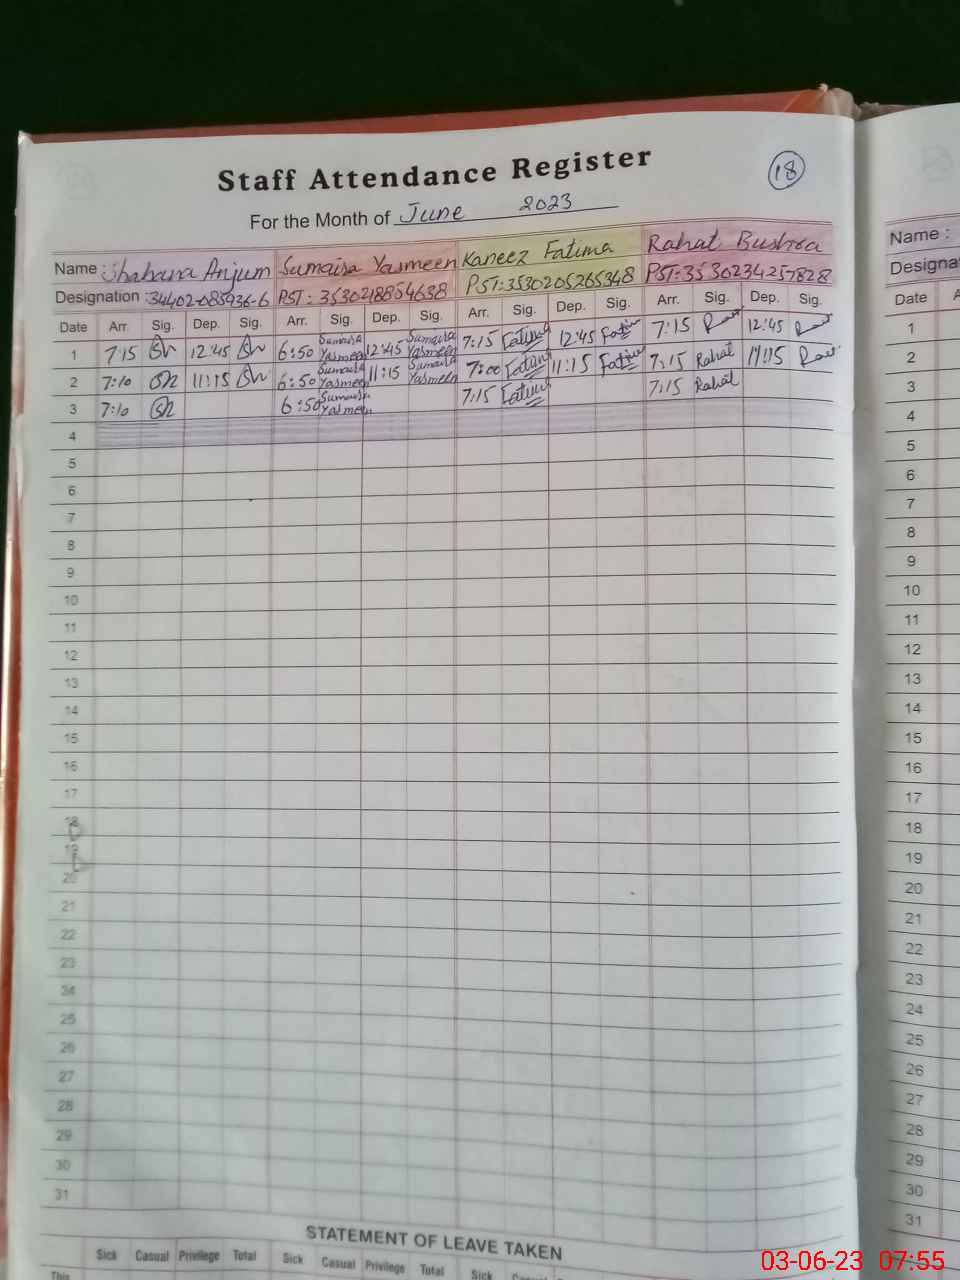 Staff Attendance Register
18
For the Month of June 2023
Name : Shabana Anjum Sumaira Yasmeen Kaneez Fatima Rahat Bushra
Designation : 34402-085936-6 PST: 3530218854638 PST: 3530205265348 PST: 3530234257828
Date Arr. Sig. Dep. Sig. Arr. Sig. Dep. Sig. Arr. Sig. Dep. Sig. Arr. Sig. Dep. Sig.
1 7:15 12:45 6:50 Sumaira Yasmeen 12:45 Sumaira Yasmeen 7:15 Fatima 12:45 Fatima 7:15 12:45
2 7:10 11:15 6:50 Sumaira Yasmeen 11:15 Sumaira Yasmeen 7:00 Fatima 11:15 Fatima 7:15 Rahat 11:15
3 7:10 6:50 Sumaira Yasmeen 7:15 Fatima 7:15 Rahat
4
5
6
7
8
9
10
11
12
13
14
15
16
17
18
19
20
21
22
23
24
25
26
27
28
29
30
31
STATEMENT OF LEAVE TAKEN
Sick Casual Privilege Total Sick Casual Privilege Total Sick
This
Name :
Date
1
2
3
4
5
6
7
8
9
10
11
12
13
14
15
16
17
18
19
20
21
22
23
24
25
26
27
28
29
30
31
03-06-23 07:55